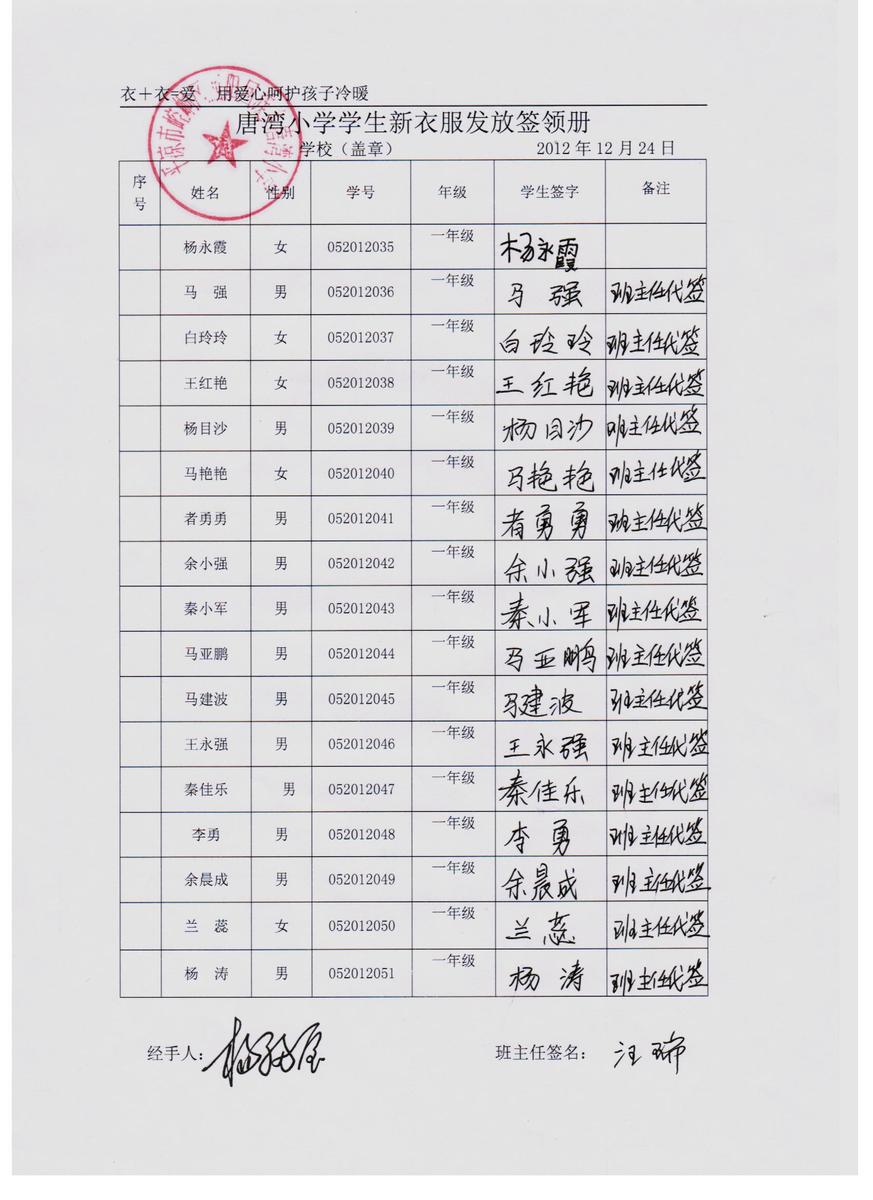 衣＋衣=爱 用爱心呵护孩子冷暖
唐湾小学学生新衣服发放签领册
学校（盖章） 2012年12月24日
序号 姓名 性别 学号 年级 学生签字 备注
杨永霞 女 052012035 一年级 杨永霞
马 强 男 052012036 一年级 马 强 班主任代签
白玲玲 女 052012037 一年级 白玲玲 班主任代签
王红艳 女 052012038 一年级 王红艳 班主任代签
杨目沙 男 052012039 一年级 杨目沙 班主任代签
马艳艳 女 052012040 一年级 马艳艳 班主任代签
者勇勇 男 052012041 一年级 者勇勇 班主任代签
余小强 男 052012042 一年级 余小强 班主任代签
秦小军 男 052012043 一年级 秦小军 班主任代签
马亚鹏 男 052012044 一年级 马亚鹏 班主任代签
马建波 男 052012045 一年级 马建波 班主任代签
王永强 男 052012046 一年级 王永强 班主任代签
秦佳乐 男 052012047 一年级 秦佳乐 班主任代签
李勇 男 052012048 一年级 李 勇 班主任代签
余晨成 男 052012049 一年级 余晨成 班主任代签
兰 蕊 女 052012050 一年级 兰 蕊 班主任代签
杨 涛 男 052012051 一年级 杨 涛 班主任代签
经手人： 班主任签名： 汪瑞